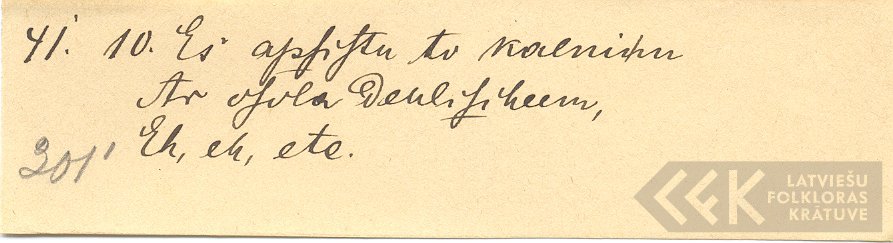 41. 10. Es apsistu to kalniņu
Ar osola Deklisiheem,
Eh, eh, etc.
301'
LATVIEŠU
FOLKLORAS
KRĀTUVE